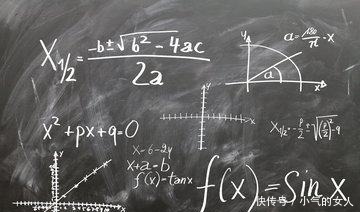 X₁/₂ = (-b ± √(b² - 4ac)) / 2a
y
a = 180/π · x
a
x
x² + px + q = 0
x
X₁/₂ = -p/2 ± √((p/2)² - q
x - 6 - 2y
x + a - b
f(x) = tanx
y
x
f(x) = Sin x
快传号 / 小气的女人